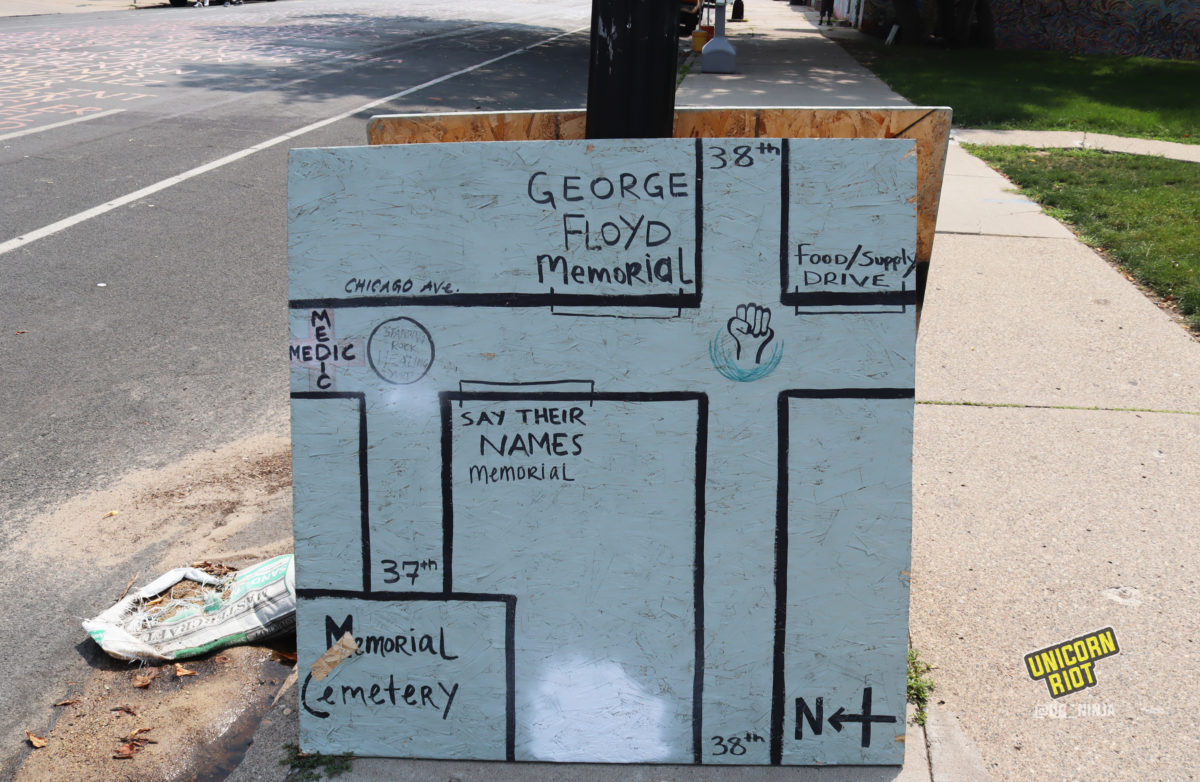 38th
GEORGE
FLOYD
MEMORIAL
FOOD/Supply
DRIVE
CHICAGO AVE.
MEDIC
MEDIC
STANDING
ROCK
SAY THEIR
NAMES
MEMORIAL
37th
MEMORIAL
CEMETERY
38th
N
UNICORN
RIOT